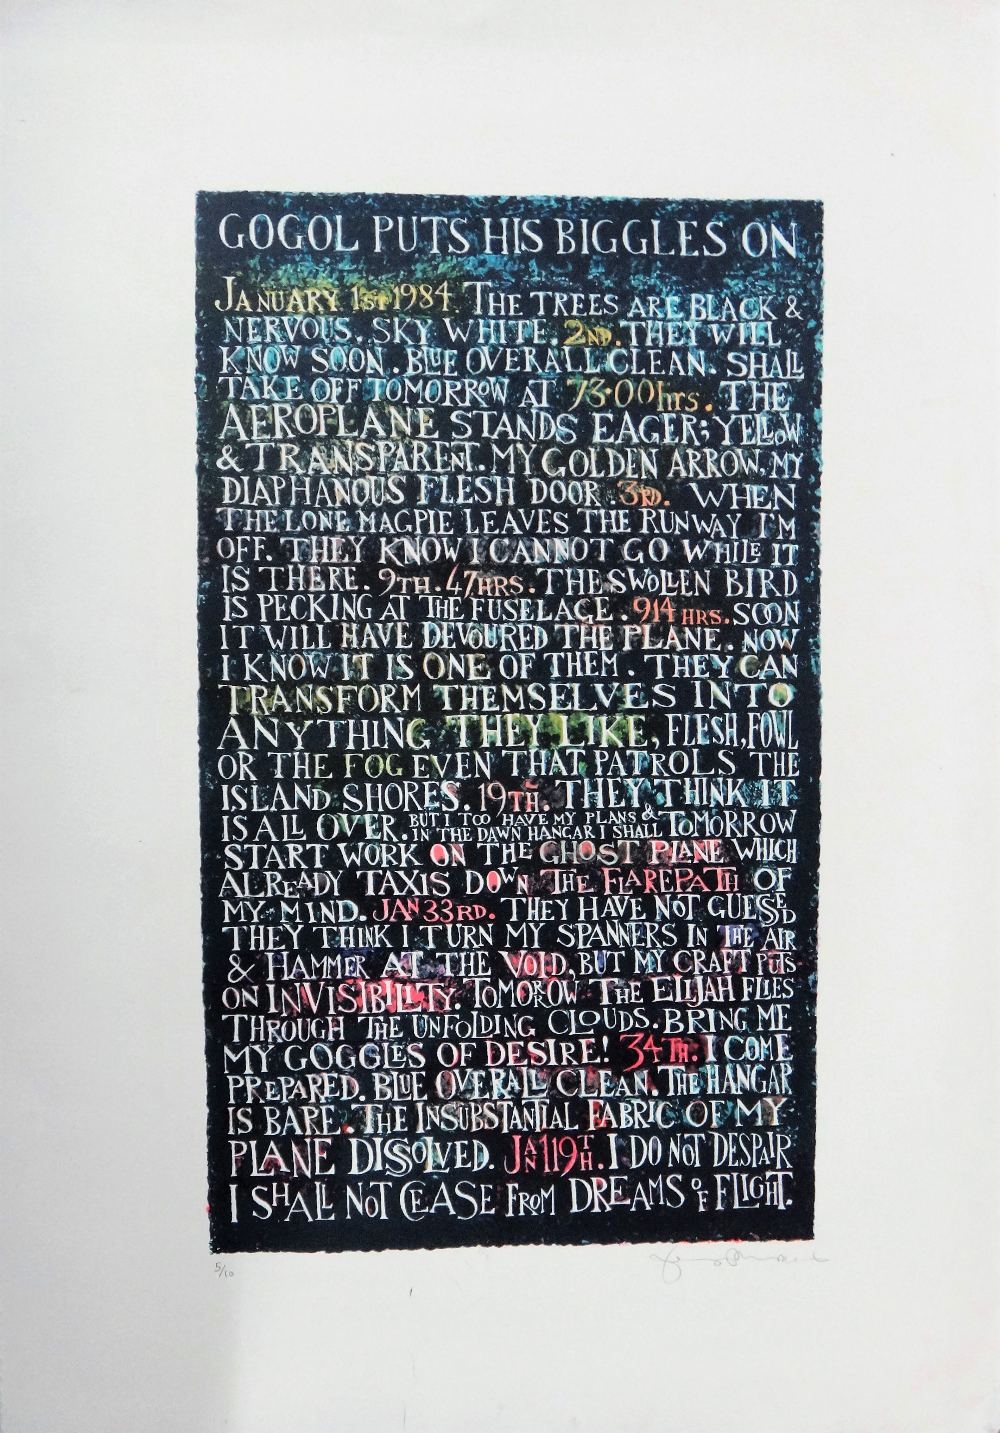 GOGOL PUTS HIS BIGGLES ON
JANUARY 1ST 1984. THE TREES ARE BLACK &
NERVOUS. SKY WHITE. 2ND. THEY WILL
KNOW SOON. BLUE OVERALL CLEAN. SHALL
TAKE OFF TOMORROW AT 73.00hrs. THE
AEROPLANE STANDS EAGER; YELLOW
& TRANSPARENT. MY GOLDEN ARROW, MY
DIAPHANOUS FLESH DOOR. 3RD. WHEN
THE LONE MAGPIE LEAVES THE RUNWAY I'M
OFF. THEY KNOW I CANNOT GO WHILE IT
IS THERE. 9TH. 47HRS. THE SWOLLEN BIRD
IS PECKING AT THE FUSELAGE. 914 HRS. SOON
IT WILL HAVE DEVOURED THE PLANE. NOW
I KNOW IT IS ONE OF THEM. THEY CAN
TRANSFORM THEMSELVES INTO
ANYTHING THEY LIKE, FLESH, FOWL
OR THE FOG EVEN THAT PATROLS THE
ISLAND SHORES. 19TH. THEY THINK IT
IS ALL OVER. BUT I TOO HAVE MY PLANS & IN THE DAWN HANGAR I SHALL TOMORROW
START WORK ON THE GHOST PLANE WHICH
ALREADY TAXIS DOWN THE FLAREPATH OF
MY MIND. JAN 33RD. THEY HAVE NOT GUESSED
THEY THINK I TURN MY SPANNERS IN THE AIR
& HAMMER AT THE VOID, BUT MY CRAFT PUTS
ON INVISIBILITY. TOMORROW THE ELIJAH FLIES
THROUGH THE UNFOLDING CLOUDS. BRING ME
MY GOGGLES OF DESIRE! 34TH. I COME
PREPARED. BLUE OVERALL CLEAN. THE HANGAR
IS BARE. THE INSUBSTANTIAL FABRIC OF MY
PLANE DISSOLVED. JAN 119TH. I DO NOT DESPAIR
I SHALL NOT CEASE FROM DREAMS OF FLIGHT.
5/10